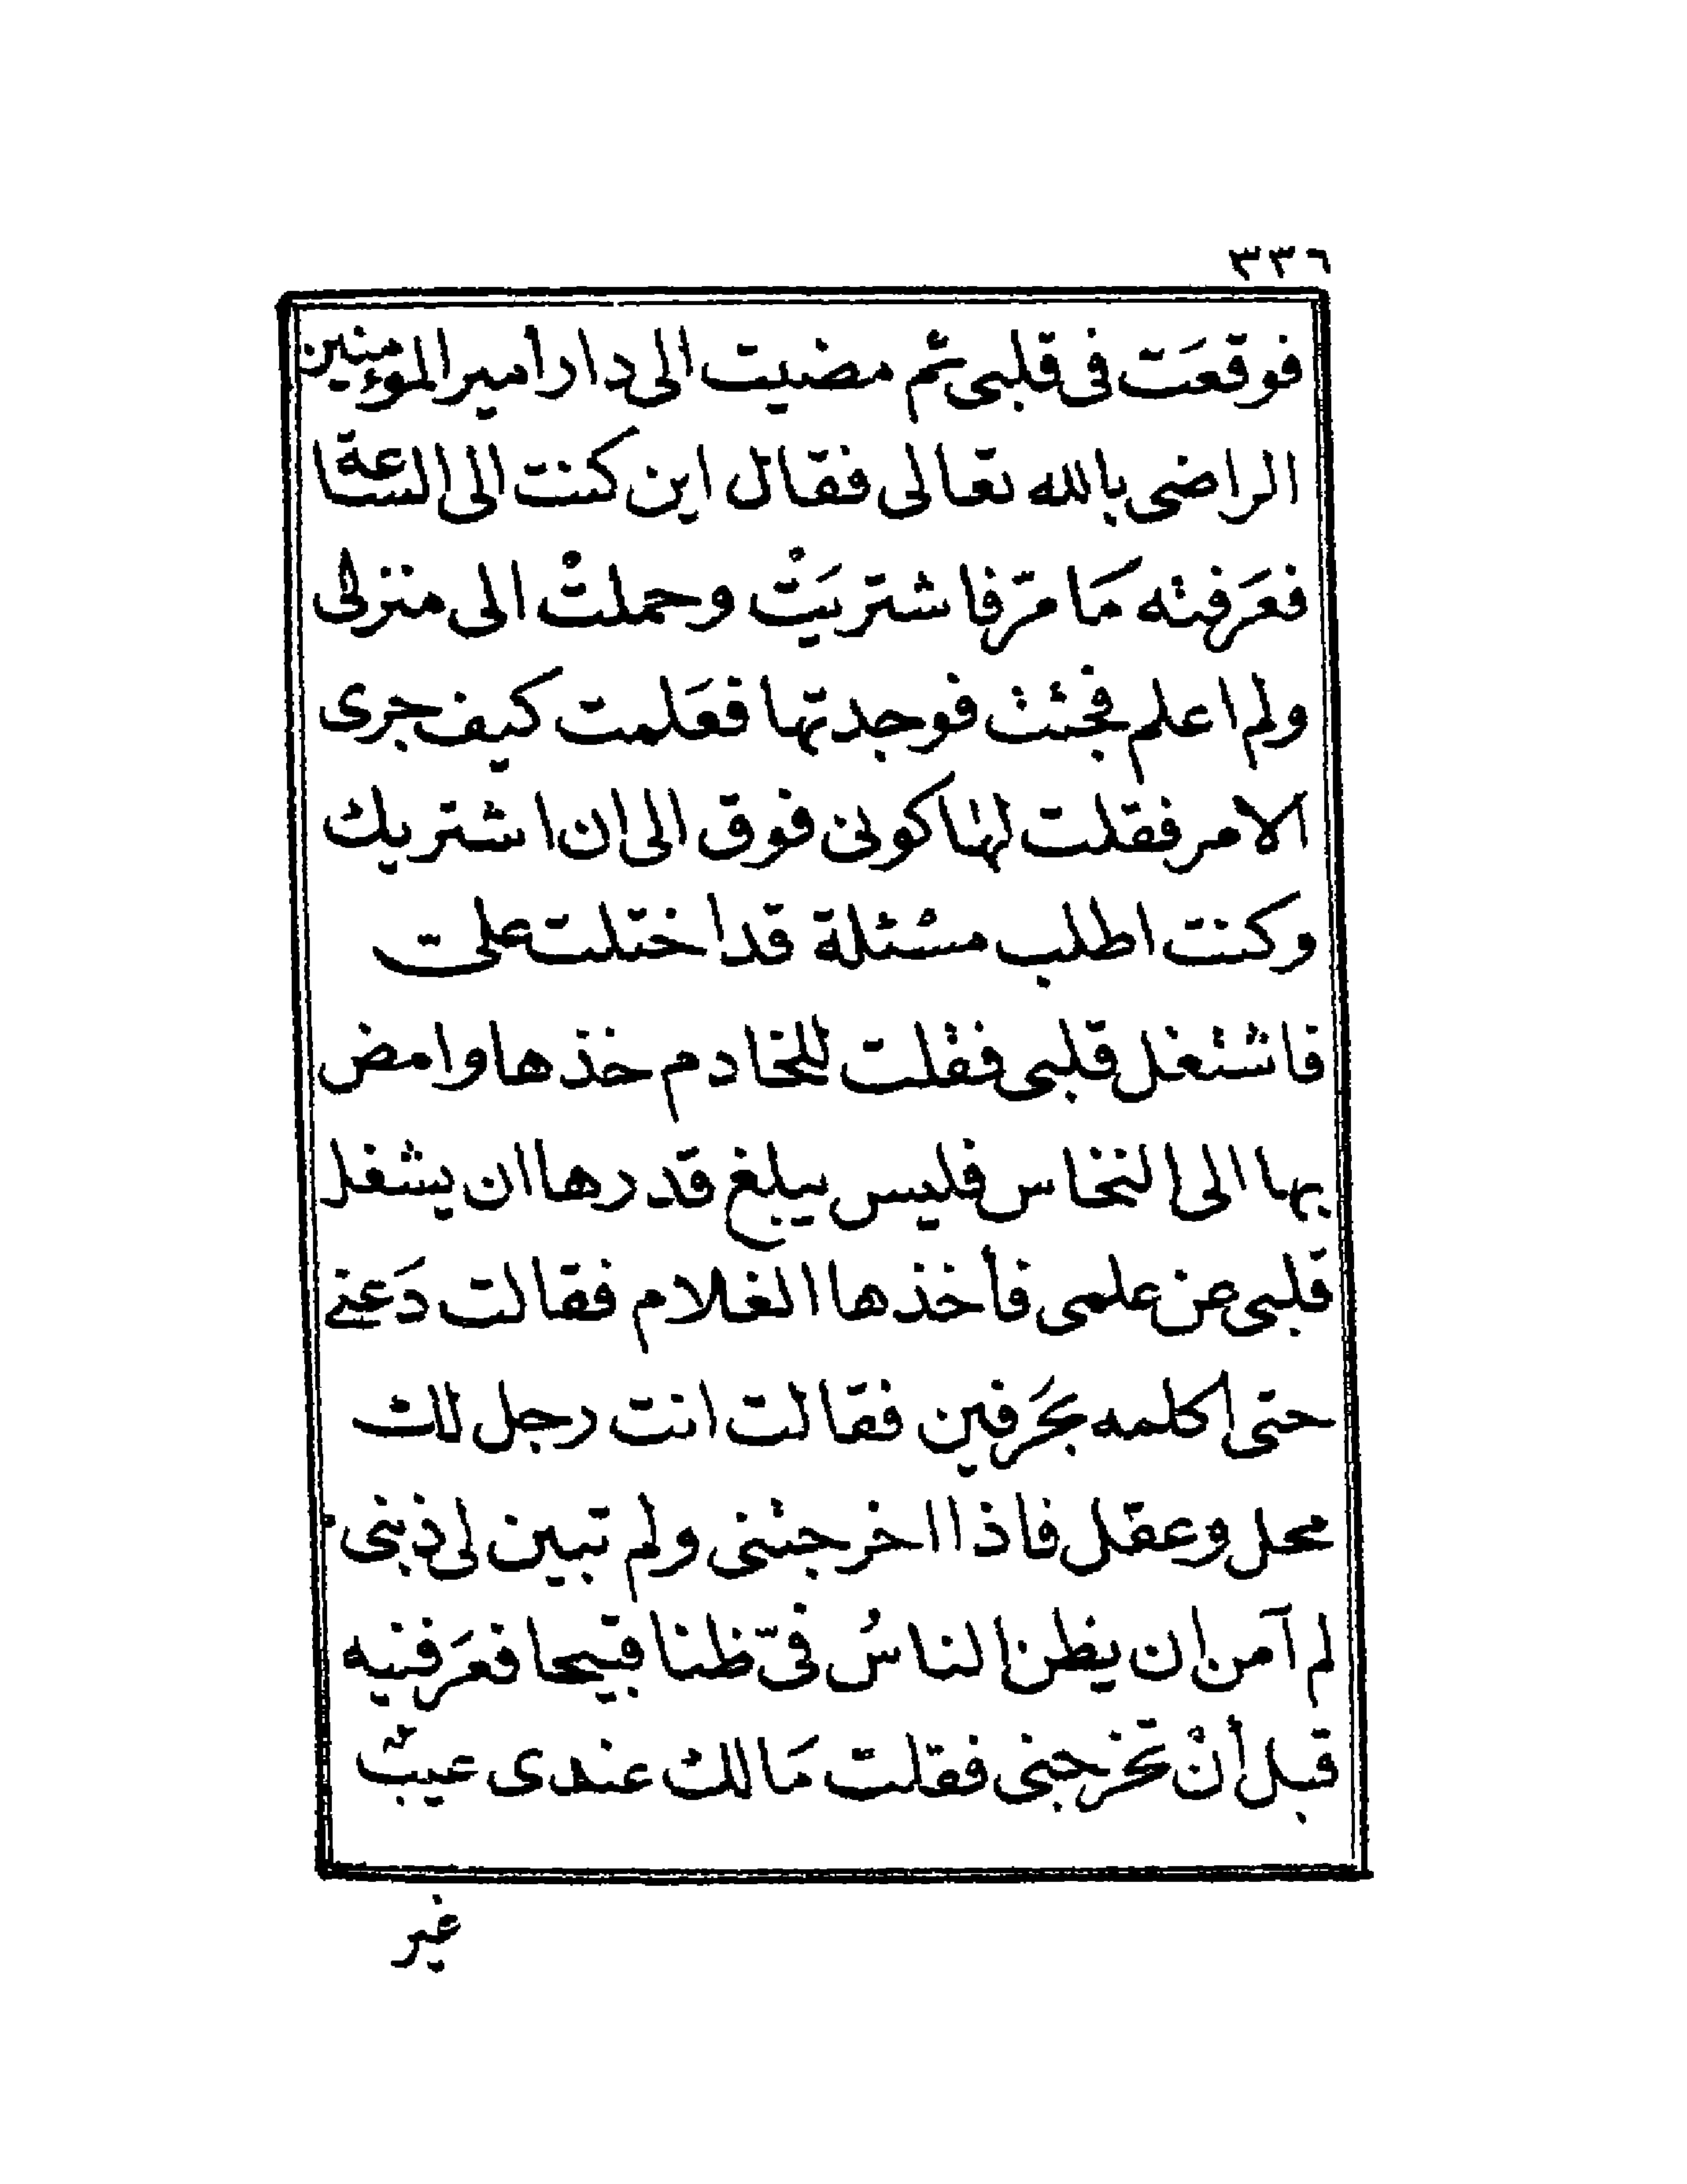 ٣٣٦
فوقعَت فى قلبى ثم مضيت الى دار أمير الموءمنين
الراضى بالله تعالى فقال اين كنت الى السّاعة
فعَرفته مَا مَرّ فاشتريَتْ وحملتْ الى منزلى
ولم اعلم فجئت فوجدتها فعَلمت كيف جرى
الامر فقلت لهَا كونى فوق الى ان اشتريك
وكنت اطلب مسْئلة قد اختلت علىّ
فاشتغل قلبى فقلت للخادم خذها وامض
بها الى النخاس فليس يبلغ قدرها ان يشغل
قلبى عن علمى فأخذها الغلام فقالت دَعنى
حتى اكلمه بحَرفين فقالت انت رجل لك
محل وعقل فاذا اخرجتنى ولم تبين لى ذنبى
لم آمن ان يظن الناسُ فىّ ظنا قبيحا فعَرفنيه
قبل أنْ تخرجنى فقلت مَا لك عندى عيبٌ
غير